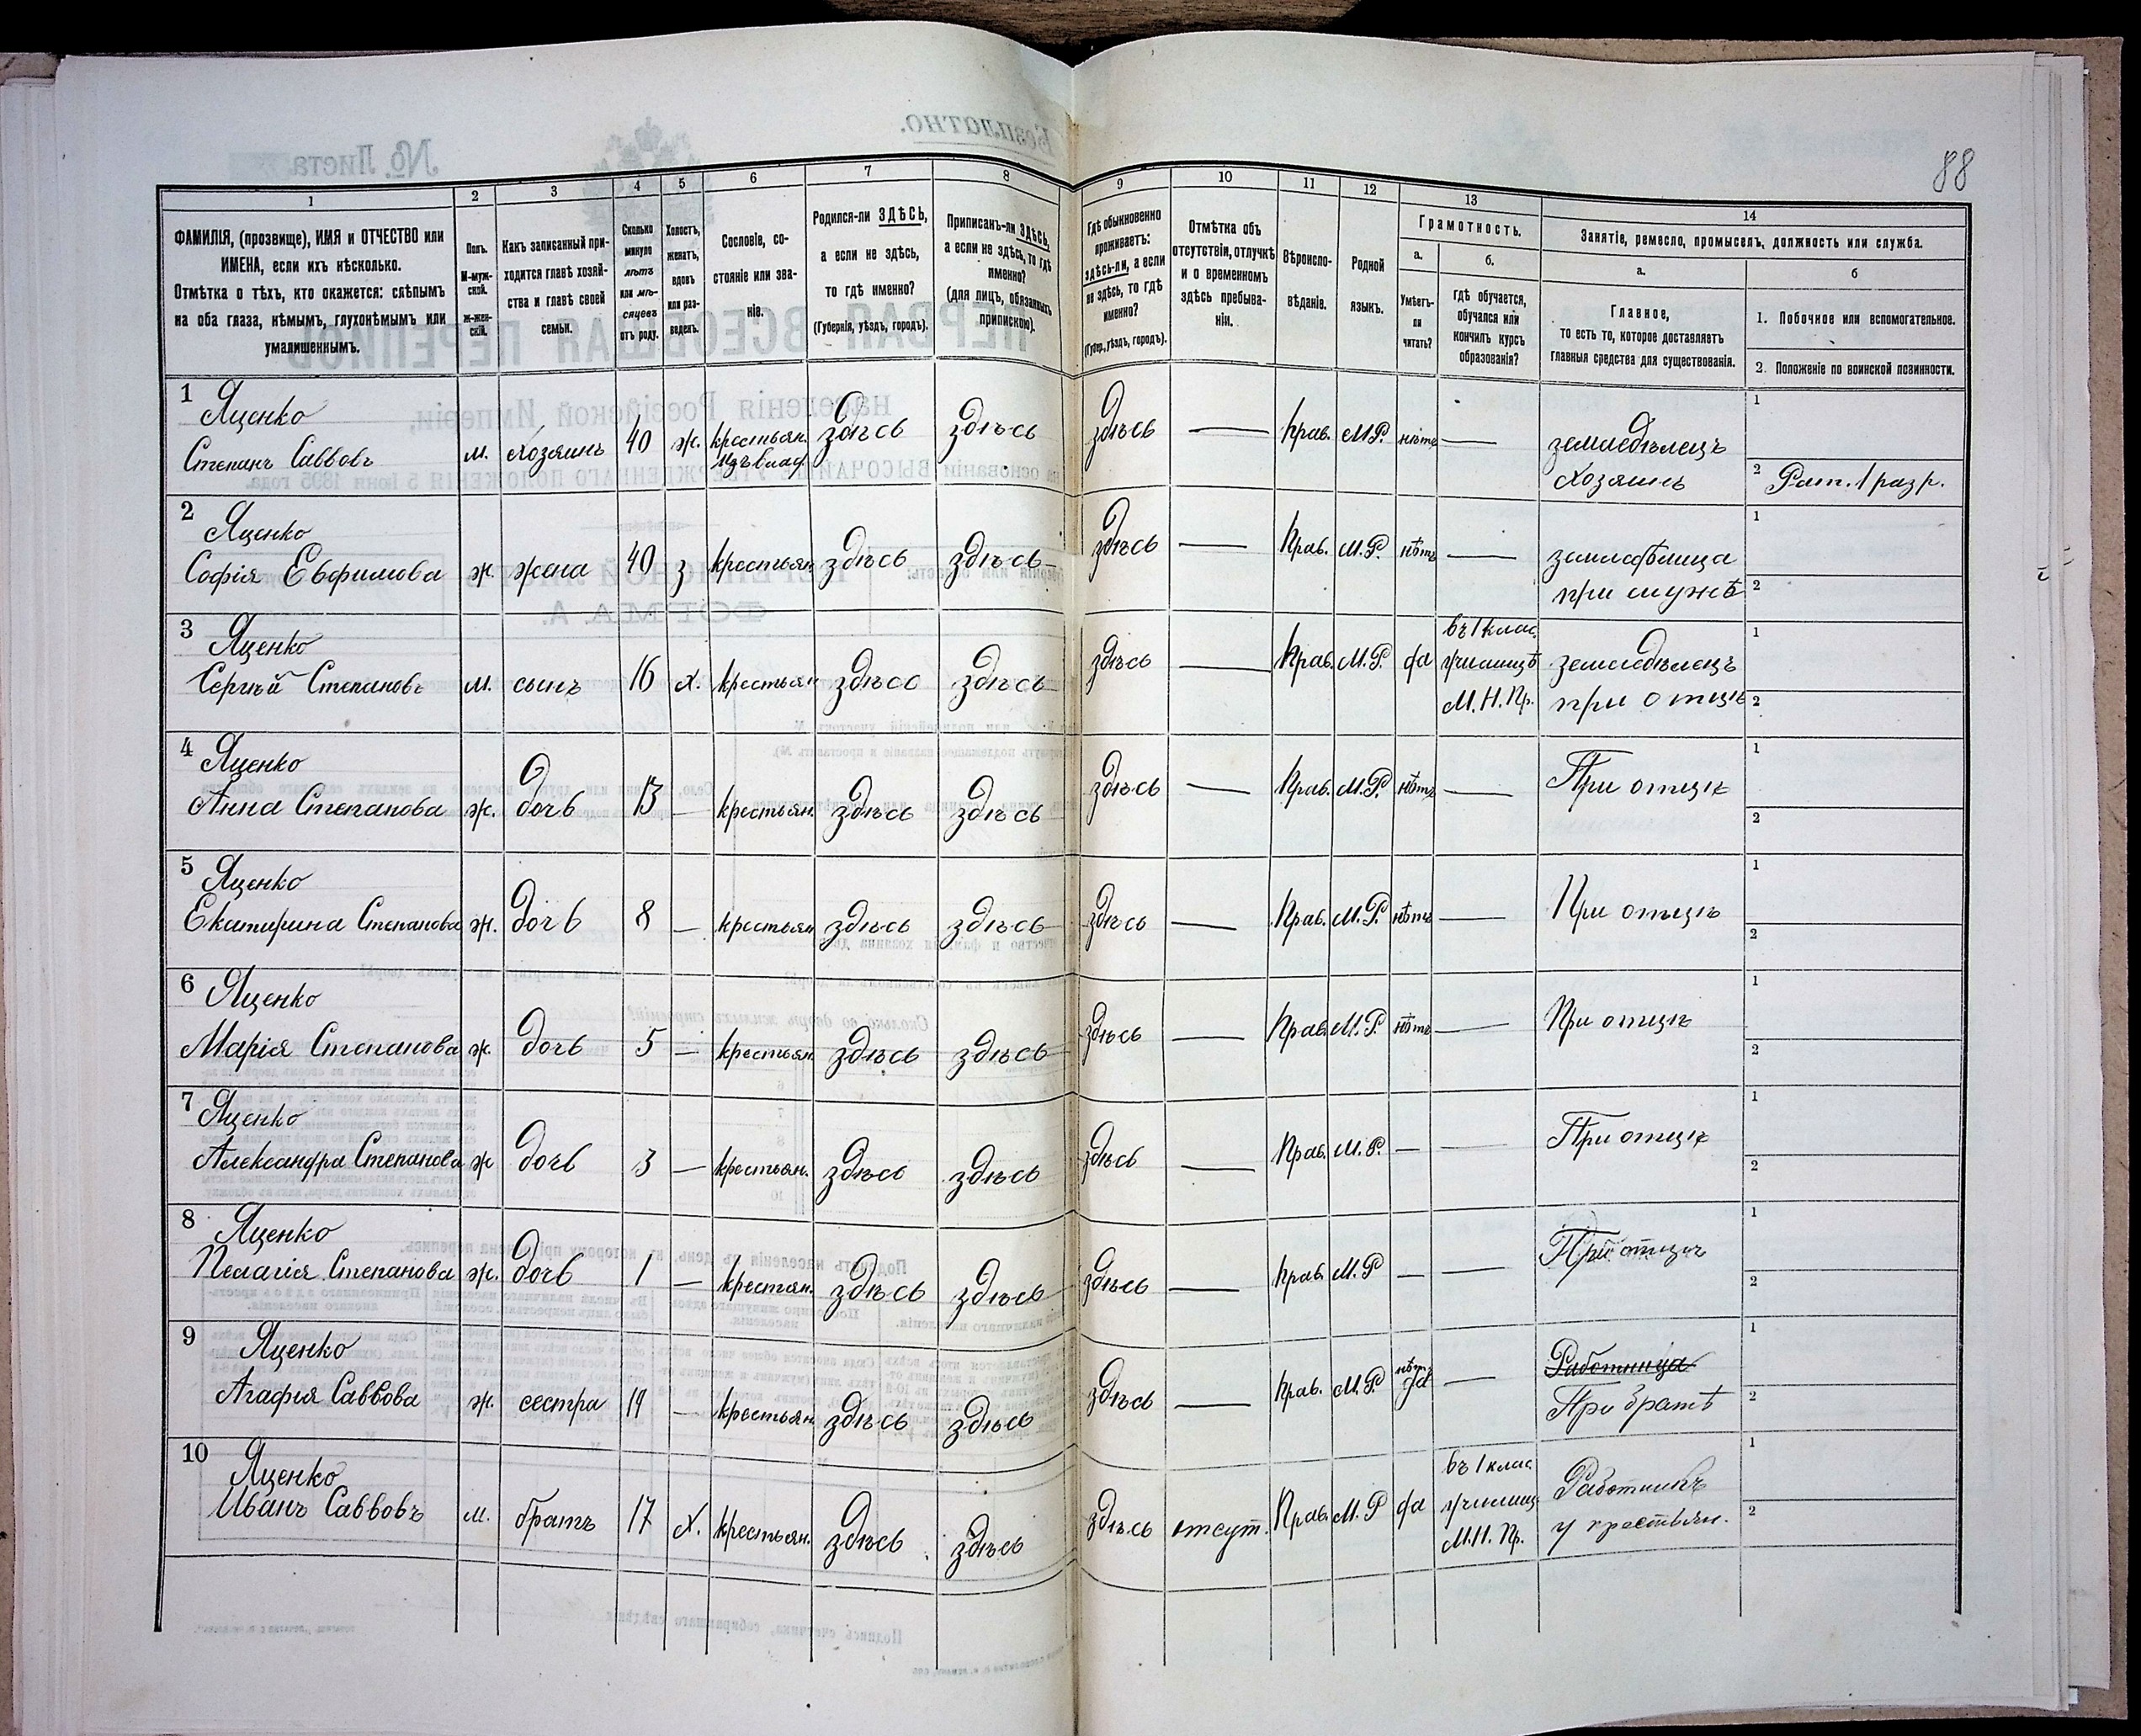 88
1 2 3 4 5 6 7 8 9 10 11 12 13 14
ФАМИЛІЯ, (прозвище), ИМЯ и ОТЧЕСТВО или
ИМЕНА, если ихъ нѣсколько.
Отмѣтка о тѣхъ, кто окажется: слѣпымъ
на оба глаза, нѣмымъ, глухонѣмымъ или
умалишеннымъ.
Полъ.
М-муж-
ской.
ж-жен-
скій.
Какъ записанный при-
ходится главѣ хозяй-
ства и главѣ своей
семьи.
Сколько
минуло
лѣтъ
или мѣ-
сяцевъ
отъ роду.
Холостъ,
женатъ,
вдовъ
или раз-
веденъ.
Сословіе, со-
стояніе или зва-
ніе.
Родился-ли ЗДѢСЬ,
а если не здѣсь,
то гдѣ именно?
(Губернія, уѣздъ, городъ).
Приписанъ-ли ЗДѢСЬ,
а если не здѣсь, то гдѣ
именно?
(для лицъ, обязанныхъ
припискою).
Гдѣ обыкновенно
проживаетъ:
здѣсь-ли, а если
не здѣсь, то гдѣ
именно?
(Губер., уѣздъ, городъ).
Отмѣтка объ
отсутствіи, отлучкѣ
и о временномъ
здѣсь пребыва-
ніи.
Вѣроиспо-
вѣданіе.
Родной
языкъ.
Грамотность.
а.
Умѣетъ-
ли
читать?
б.
гдѣ обучается,
обучался или
кончилъ курсъ
образованія?
Занятіе, ремесло, промыселъ, должность или служба.
а.
Главное,
то есть то, которое доставляетъ
главныя средства для существованія.
б
1. Побочное или вспомогательное.
2. Положеніе по воинской повинности.
1 Яценко
Степанъ Саввовъ м. хозяинъ 40 ж. крестьян. здѣсь здѣсь здѣсь — Прав. М.Р. нѣтъ — земледѣлецъ
хозяинъ 1
2 Рат. 1 разр.
2 Яценко
Софія Евфимова ж. жена 40 з крестьян здѣсь здѣсь здѣсь — Прав. М.Р. нѣтъ —
при мужѣ 1
2
3 Яценко
Сергѣй Степановъ м. сынъ 16 х. крестьян здѣсь здѣсь здѣсь — Прав. М.Р. да въ 1 клас.
училищѣ
М.Н.Пр. земледѣлецъ
при отцѣ 1
2
4 Яценко
Анна Степанова ж. дочь 13 — крестьян. здѣсь здѣсь здѣсь — Прав. М.Р. нѣтъ — При отцѣ 1
2
5 Яценко
Екатирина Степанова ж. дочь 8 — крестьян здѣсь здѣсь здѣсь — Прав. М.Р. нѣтъ — При отцѣ 1
2
6 Яценко
Марія Степанова ж. дочь 5 — крестьян здѣсь здѣсь здѣсь — Прав. М.Р. нѣтъ — При отцѣ 1
2
7 Яценко
Александра Степанова ж дочь 3 — крестьян. здѣсь здѣсь здѣсь — Прав. М.Р. — — При отцѣ 1
2
8 Яценко
Пелагія Степанова ж. дочь 1 — крестян. здѣсь здѣсь здѣсь — Прав. М.Р — — При отцѣ 1
2
9 Яценко
Агафия Саввова ж. сестра 19 — крестьян здѣсь здѣсь здѣсь — Прав. М.Р. нѣтъ
да — Работница
При братѣ 1
2
10 Яценко
Иванъ Саввовъ м. братъ 17 х. крестьян. здѣсь здѣсь здѣсь отсут. Прав. М.Р да въ 1 клас
училищ
М.Н.Пр. Работникъ
у крестьян. 1
2